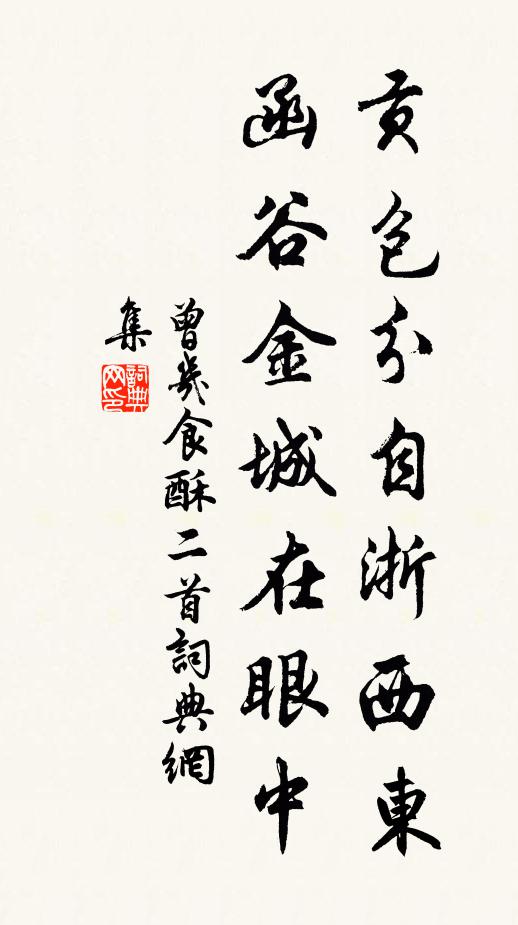 貢包分自浙西東
函谷金城在眼中
曾幾食酥二首詞典網
集
詞典
网印